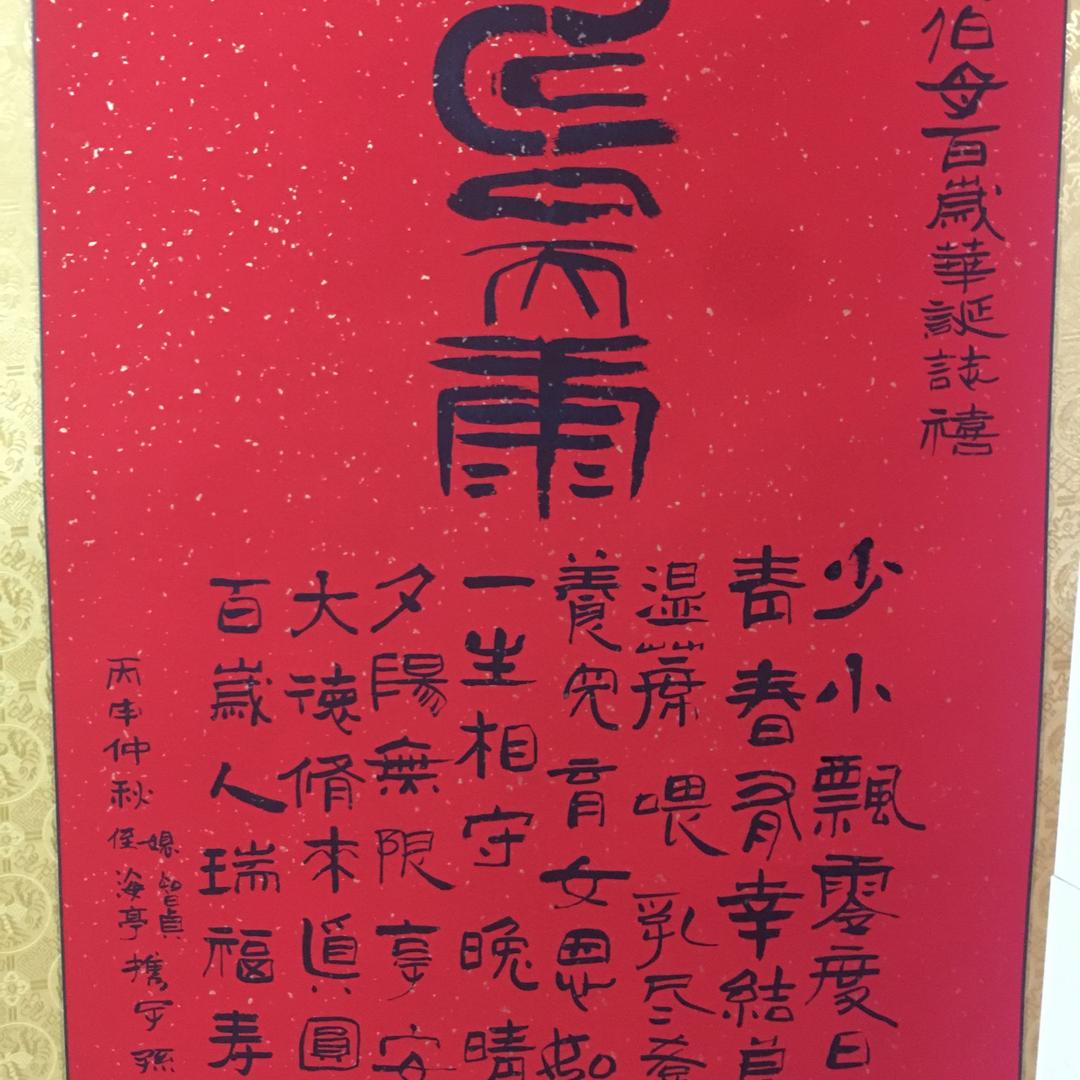 伯母百歲華誕誌禧
少小飄零度日
青春有幸結
温喂乳尽
養兒育女恩如
一生相守晚晴
夕陽無限享安
大德脩来真圓
百歲人瑞福寿
丙申仲秋
侄媳海亭智貞携子孫